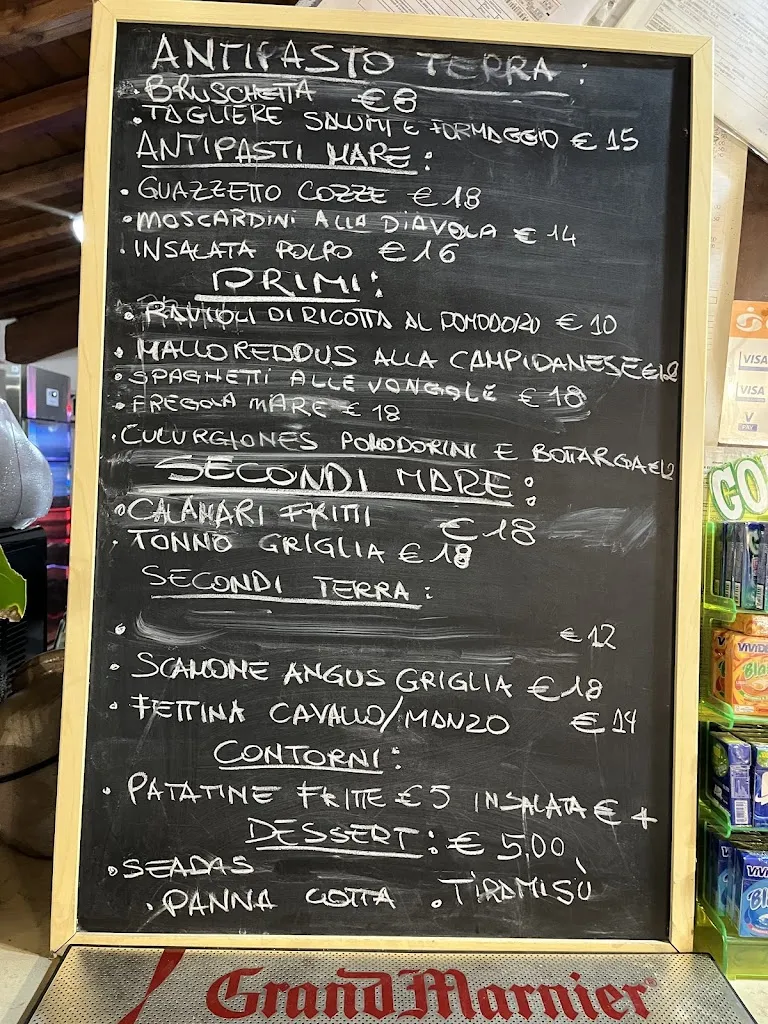 ANTIPASTO TERRA:
• BRUSCHETTA €8
• TAGLIERE SALUMI E FORMAGGIO € 15
ANTIPASTI MARE:
• GUAZZETTO COZZE €18
• MOSCARDINI ALLA DIAVOLA € 14
• INSALATA POLPO €16
PRIMI:
• RAVIOLI DI RICOTTA AL POMODORO € 10
• MALLOREDDUS ALLA CAMPIDANESE €12
• SPAGHETTI ALLE VONGOLE €18
• FREGOLA MARE € 18
• CULURGIONES POMODORINI E BOTTARGA €12
SECONDI MARE:
• CALAMARI FRITTI €18
• TONNO GRIGLIA €18
SECONDI TERRA:
• €12
• SCAMONE ANGUS GRIGLIA €18
• FETTINA CAVALLO/MANZO €14
CONTORNI:
• PATATINE FRITTE €5 INSALATA € 4
DESSERT: € 5,00
• SEADAS
• PANNA COTTA • TIRAMISÙ
Grand Marnier
VISA
VISA
V
PAY
VIVIDENT